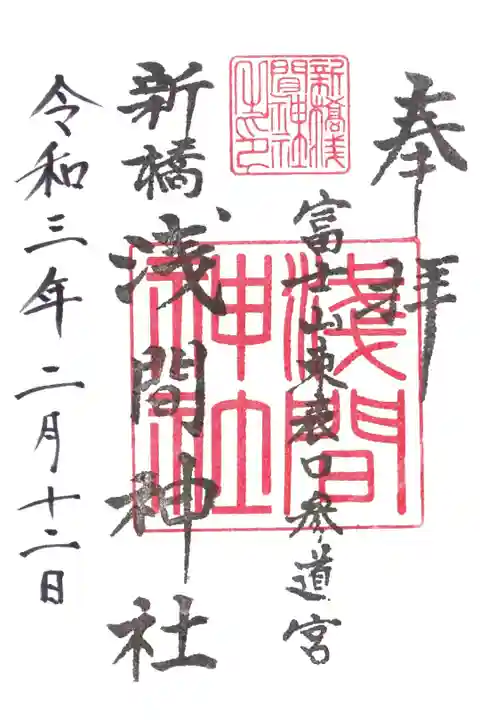 奉拝
富士山東表口参道宮
新橋浅間神社
令和三年二月十二日
新橋浅
間神社
之印
淺間
神社